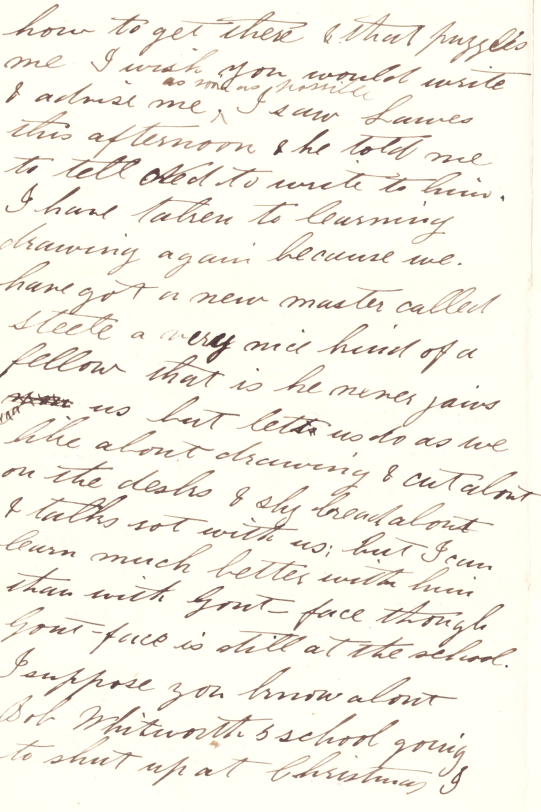 how to get there & that puzzles
me I wish you would write
as soon as possible
& advise me ^ I saw Lawes
this afternoon & he told me
to tell Ned to write to him.
I have taken to learning
drawing again because we.
have got a new master called
Steele a very nice kind of a
fellow that is he never jaws
us but lets us do as we
like about drawing & cut about
on the desks & shy bread about
& talks rot with us; but I can
learn much better with him
than with Gout-face though
Gout-face is still at the school.
I suppose you know about
Bob Whitworth's school going
to shut up at Christmas I